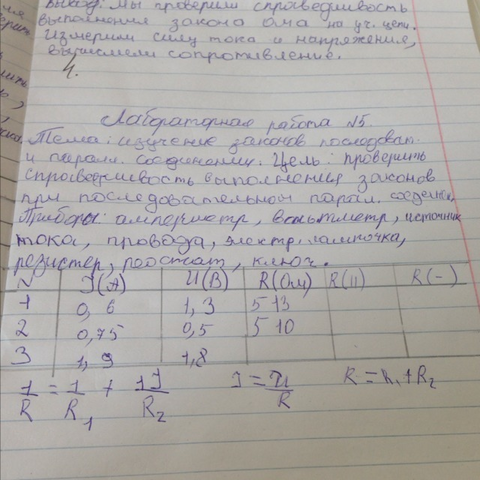 Вывод: мы проверили справедливость
выполнения закона ома на уч. цепи.
Измерили силу тока и напряжение,
вычислили сопротивление.
4.
Лабораторная работа №5.
Тема: изучение законов последоват.
и паралл. соединении. Цель: проверить
справедливость выполнения законов
при последовательном парал. соединен.
Приборы: амперметр, вольтметр, источник
тока, провода, электр. лампочка,
резистер, реостат, ключ.
N I(A) U(В) R(Ом) R(11) R(-)
1 0,6 1,3 5 13
2 0,75 0,5 5 10
3 1,9 1,8
1/R = 1/R1 + 1J/R2 I = U/R R = R1+R2